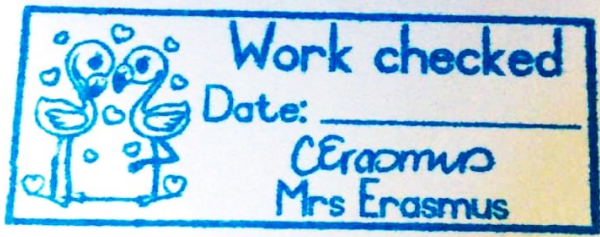 Work checked
Date:
CErasmus
Mrs Erasmus